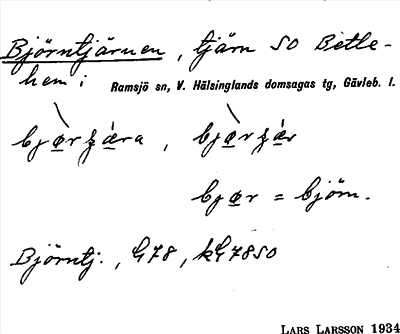 Björntjärnen, tjärn SO Betle-
hem i Ramsjö sn, V. Hälsinglands domsagas tg, Gävleb. l.
bjœ̀rʒǽra, bjœ̀rʒǽr
bjœr = björn.
Björntj., G78, kG78SO
LARS LARSSON 1934